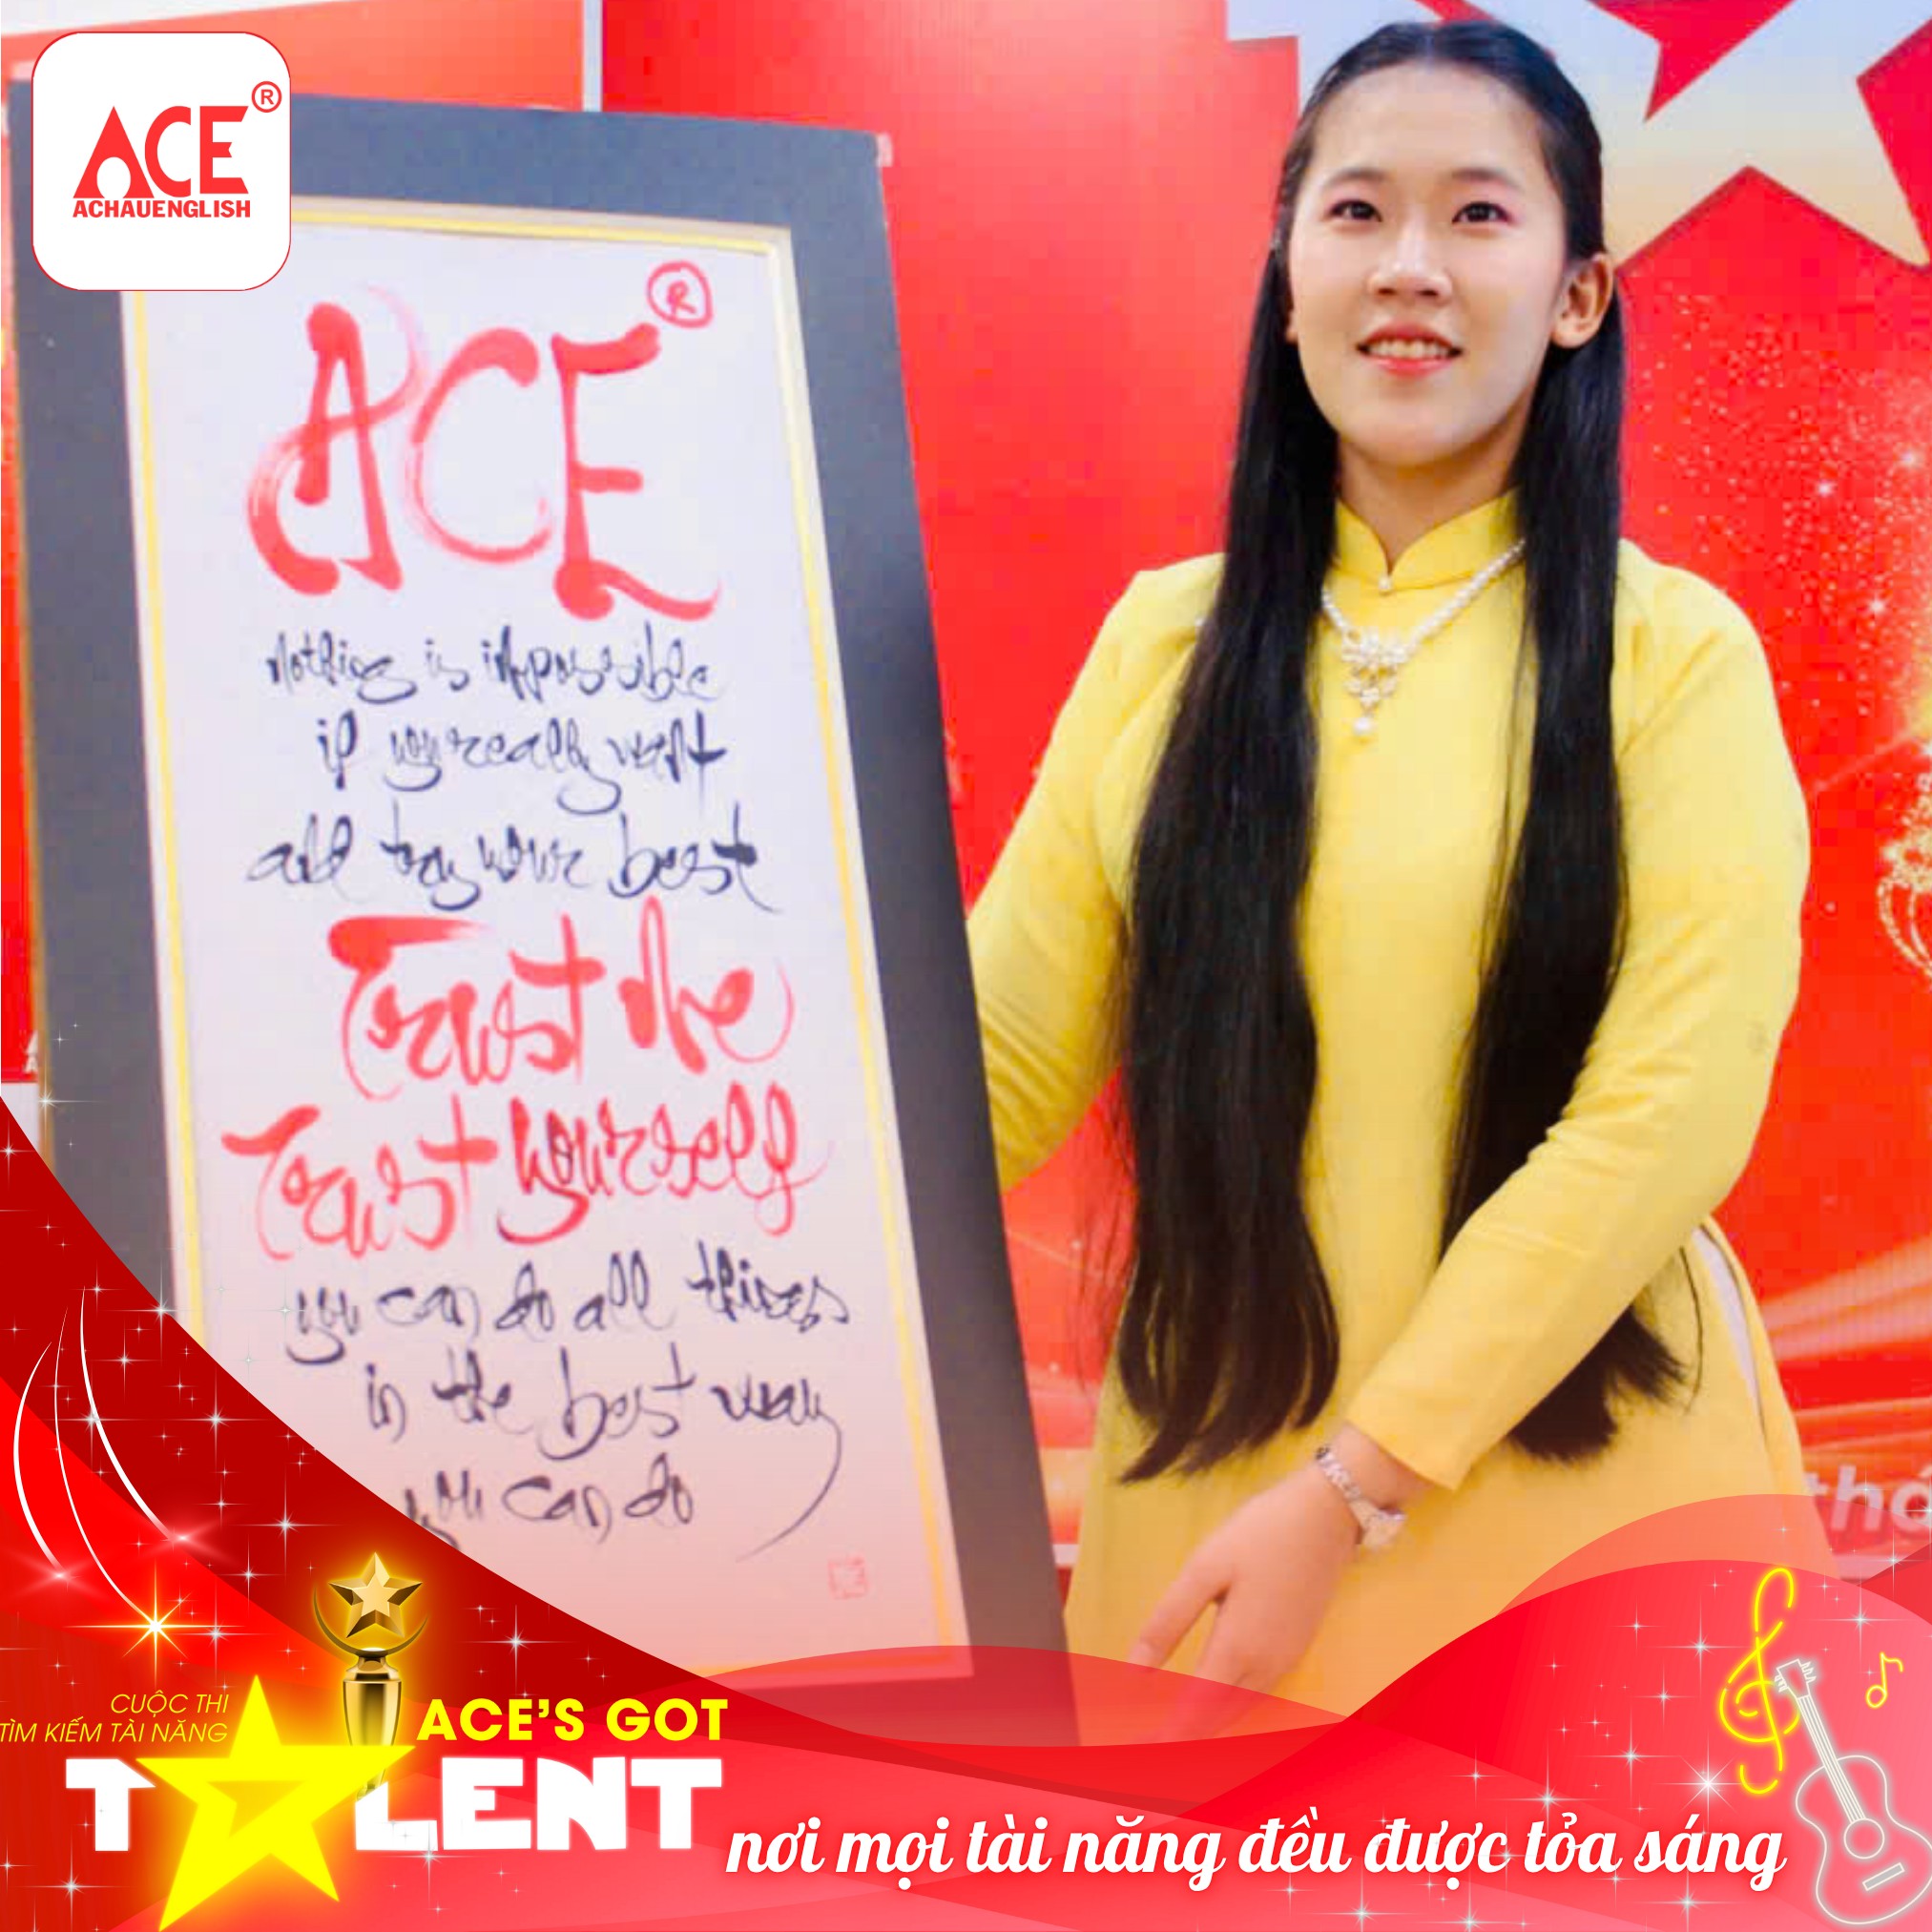 ACE®
ACHAUENGLISH
ACE®
nothing is impossible
if you really want
and try your best
Trust me
Trust yourself
you can do all things
in the best way
you can do
thá
CUỘC THI
TÌM KIẾM TÀI NĂNG
ACE'S GOT
TALENT
nơi mọi tài năng đều được tỏa sáng